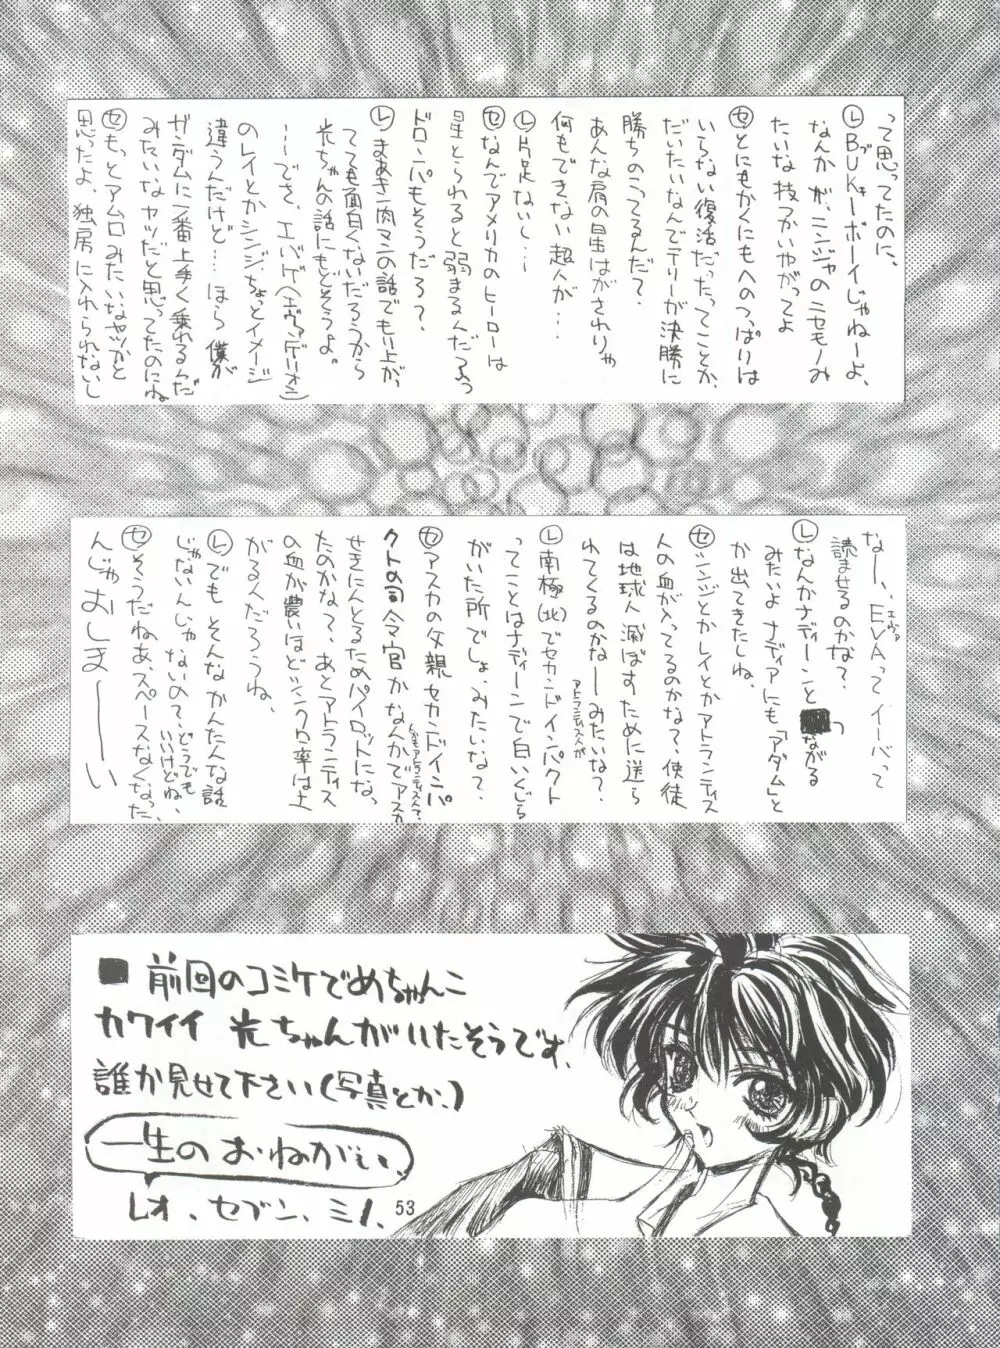 って思ってたのに、
Ⓛ BUKキーボーイじゃねーよ、
なんかが、ニンジャのニセモノみ
たいな技つかいやがってよ
セとにもかくにもへのつっぱりは
いらない復活だったってことか、
だいたいなんでテリーが決勝に
勝ちのこってるんだ?
あんな肩の星はがされりゃ
何もできない超人が…
Ⓛ片足ないし…
セなんでアメリカのヒーローは
星とられると弱まるんだろっ
ドロンパもそうだろ?
Ⓛまあキン肉マンの話でもり上が、
てても面白くないだろうから
光ちゃんの話にもどそうよ。
ーーでさ、エバゲ(エヴァンゲリオン)
のレイとかシンジちょっとイメージ
違うんだけど… ほら 僕が
ガンダムに一番上手く乗れるんだ
みたいなヤツだと思ってたのにね
セもっとアムロみたいなヤツかと
思ったよ、独房に入れられないし
なー、EVAエヴァってイーバって
読ませるのかな?
Ⓛなんかナディーンとつながる
みたいよナディアにも「アダム」と
か出てきたしね、
セシンジとかレイとかアトランティス
人の血が入ってるのかなって、使徒
は地球人滅ぼすために送ら
れてくるのかなーみたいな?
アトランティス人が
Ⓛ南極(北)でセカンドインパクト
ってことはナディーンで白いくじら
がいた所でしょ、みたいな?
セアスカの父親セカンドインパ
クトの司令官かなんかでアスカ
せきにんとるためパイロットにな、
たのかなって、あとアトランティス
の血が濃いほどシンクロ率は上
がるんだろうね、
Ⓛでもそんなかんたんな話
じゃないんじゃないの?、どうでも
いいけどね、
セそうだねあ、スペースなくなった、
んじゃおしまーーーい
■前回のコミケでめちゃんこ
カワイイ光ちゃんがいたそうです、
誰か見せて下さい(写真とか、)
一生のおねがい、
レオ、セブン、ミノ、
53